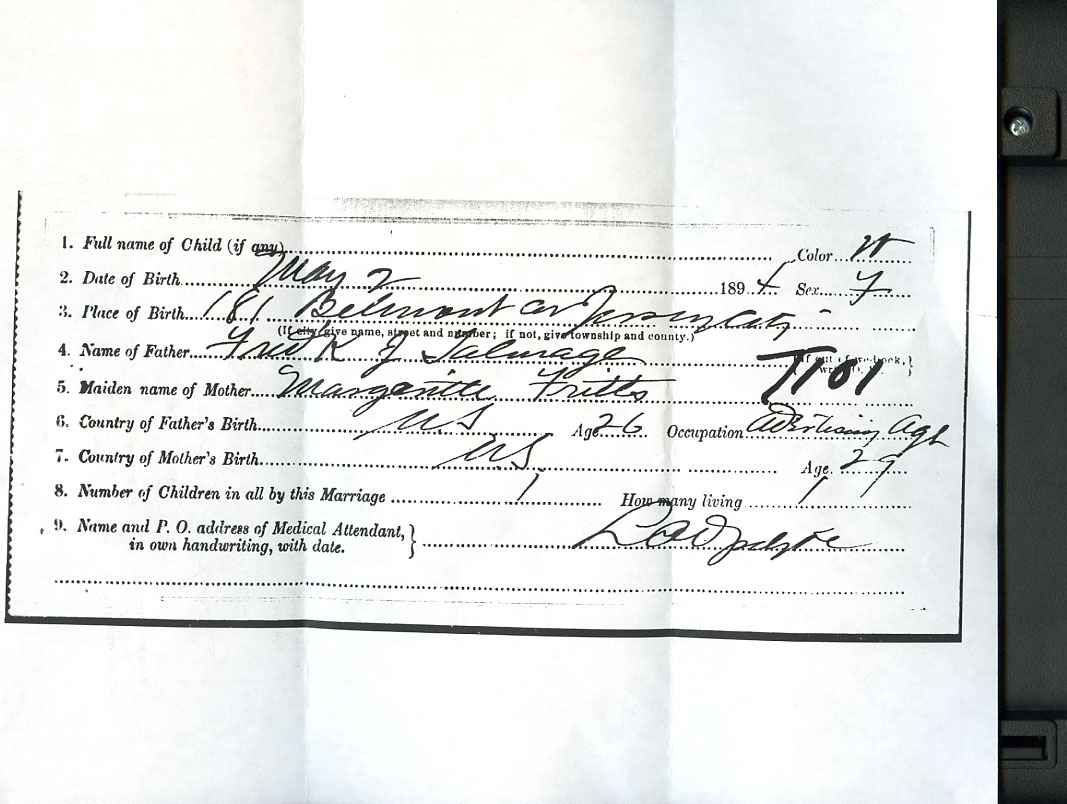 1. Full name of Child (if any) Color W
2. Date of Birth May 2 1894 Sex F
3. Place of Birth 181 Belmont av Jersey City
(If city, give name, street and number; if not, give township and county.)
4. Name of Father Fredk J Talmage {If out of wedlock, write O. W.}
5. Maiden name of Mother Fritts T701
6. Country of Father's Birth U.S Age 26 Occupation Advertising Agt
7. Country of Mother's Birth U.S. Age 29
8. Number of Children in all by this Marriage 1 How many living 1
9. Name and P. O. address of Medical Attendant,
in own handwriting, with date. }